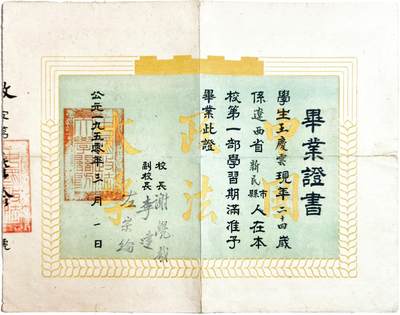 畢業證書
學生王慶雲現年二十四歲
係遼西省新民市縣人在本
校第一部學習期滿准予
畢業此證
校長謝覺哉
副校長李達
左宗綸
公元一九五零年 月一日
中國
政法
大學